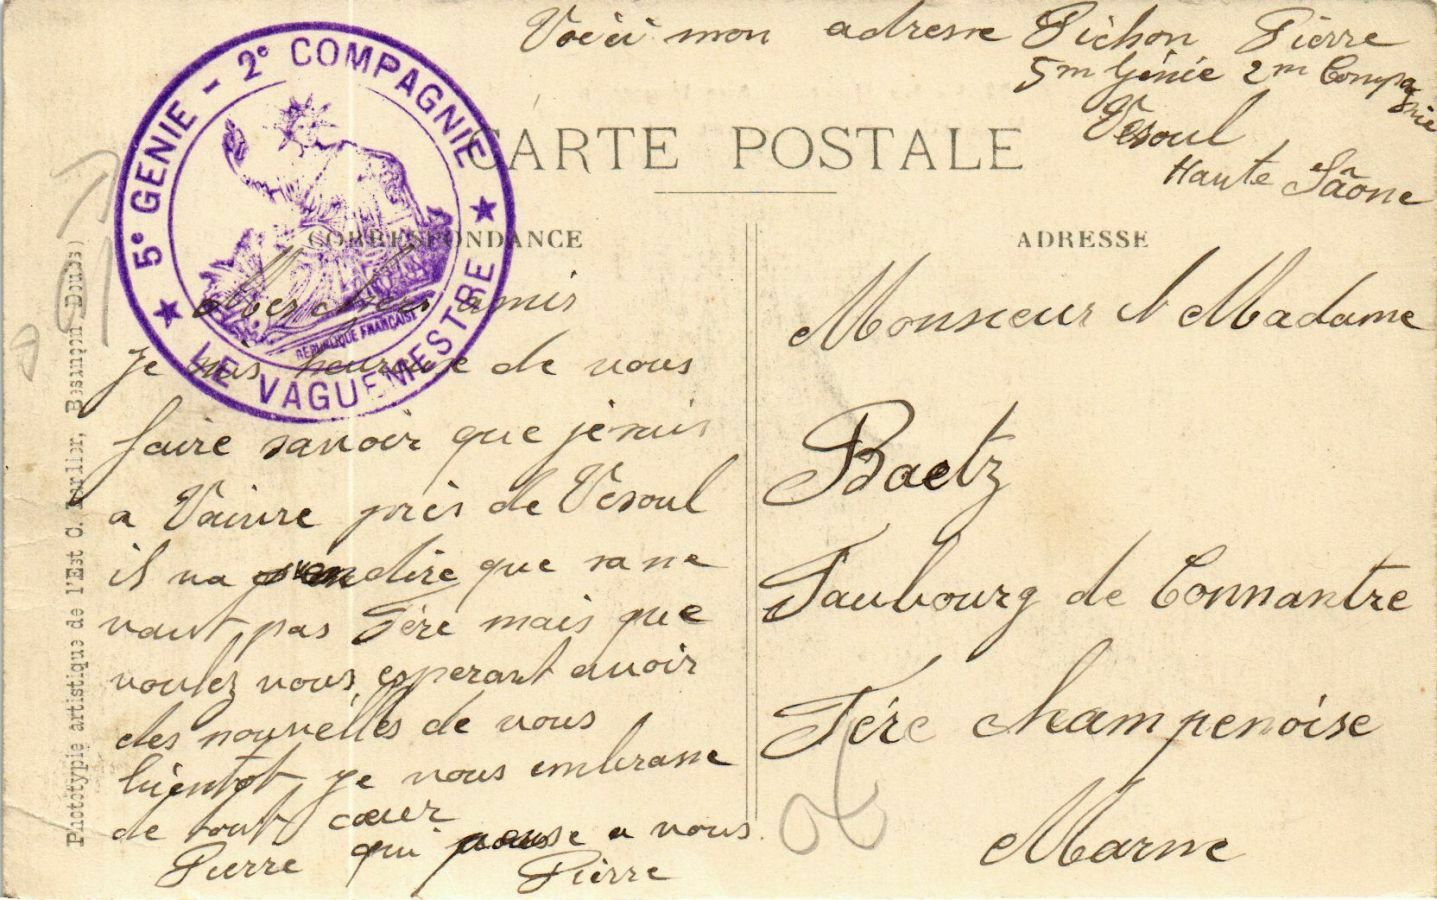 Voiéi mon adresse Pichon Pierre
5m Génie 2m Compagnie
Vesoul
Haute Sâone
5e GENIE - 2e COMPAGNIE
★ LE VAGUEMESTRE ★
REPUBLIQUE FRANCAISE
CARTE POSTALE
CORRESPONDANCE
Mes chers amis
je suis heureuse de vous
faire savoir que je suis
a Vaivre près de Vesoul
il va sven dire que sa ne
vaut pas Fére mais que
voulez vous esperant avoir
des nouvélles de vous
bientot je vous embrasse
de tout coeur
Pierre qui pense a vous.
Pierre
ADRESSE
Monsieur et Madame
Baetz
Faubourg de Connantre
Fére champenoise
Marne
Phototypie artistique de l'Est C. Lardier, Besançon (Doubs)